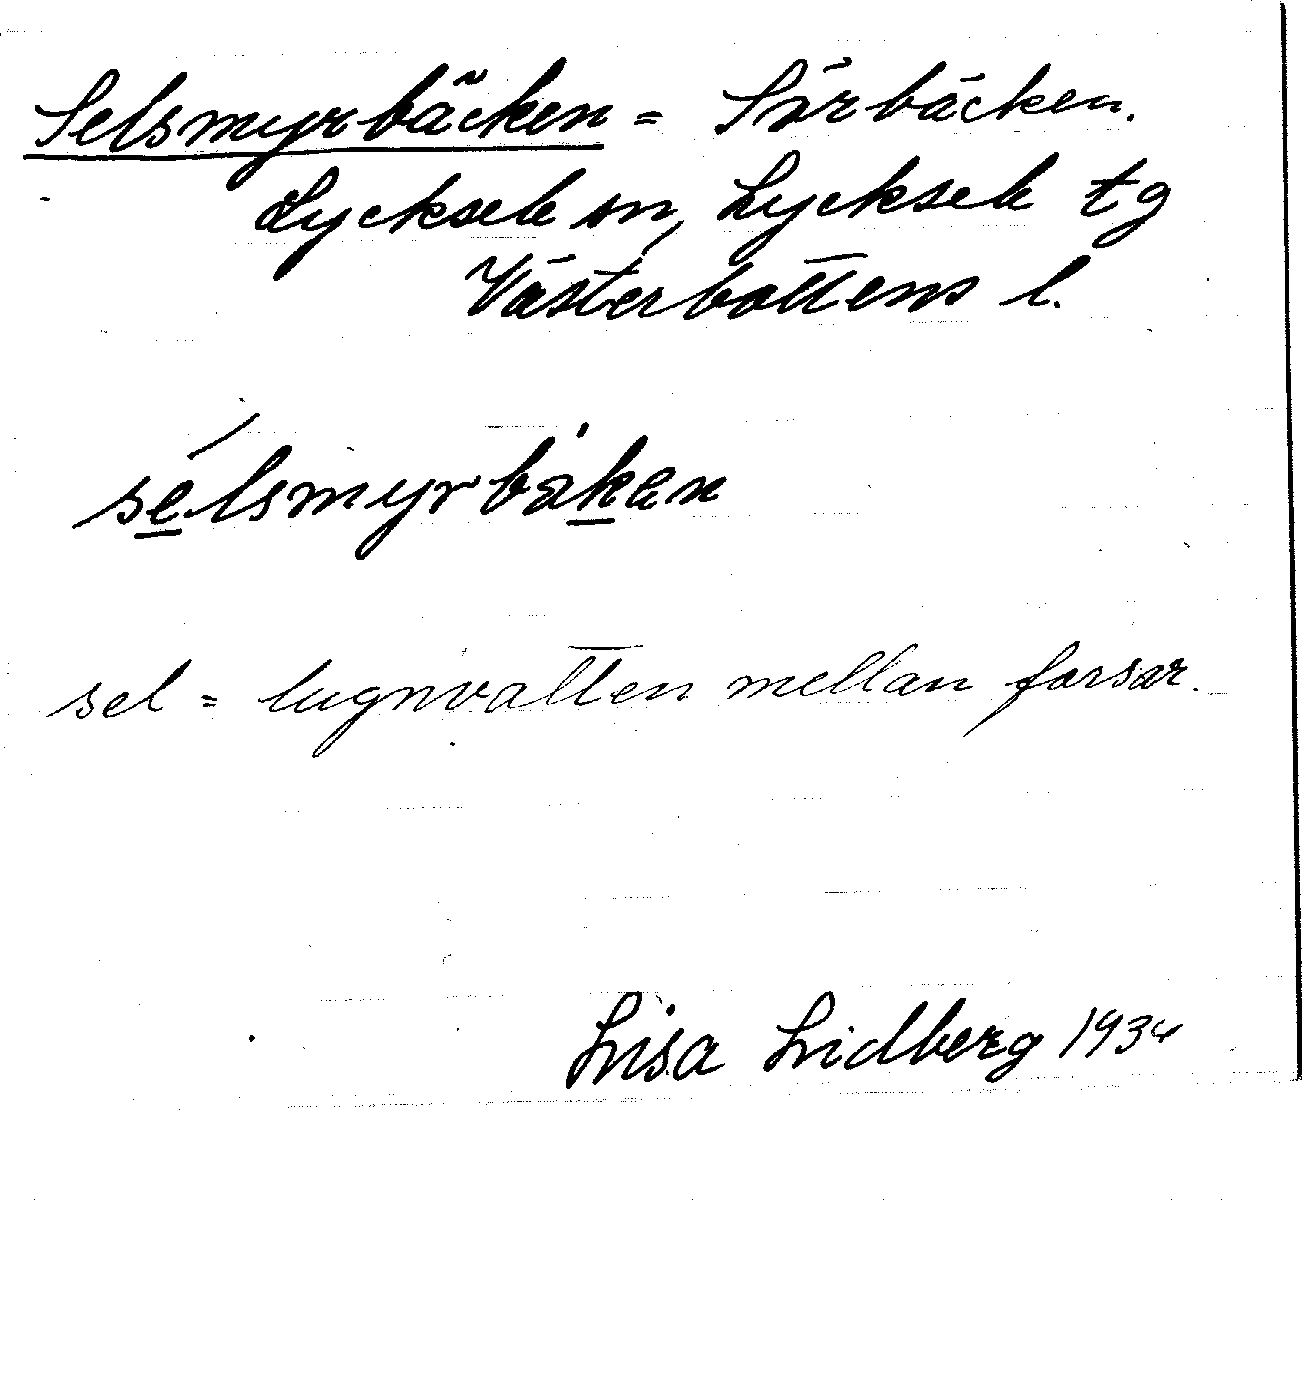 Selsmyrbäcken = Sörbäcken.
Lycksele sn, Lycksele tg
Västerbottens l.
sélsmyrbäken
sel = lugnvatten mellan forsar.
Lisa Lidberg 1934